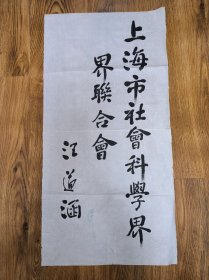 上海市社會科學界
界聯合會
江道涵